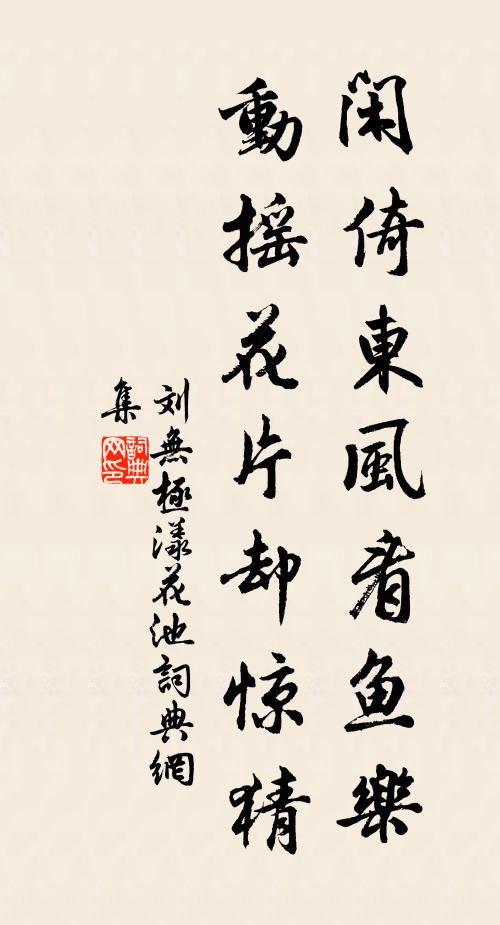 闲倚東風看鱼樂
動摇花片却惊猜
刘無極漾花池詞典網
集
詞典网印